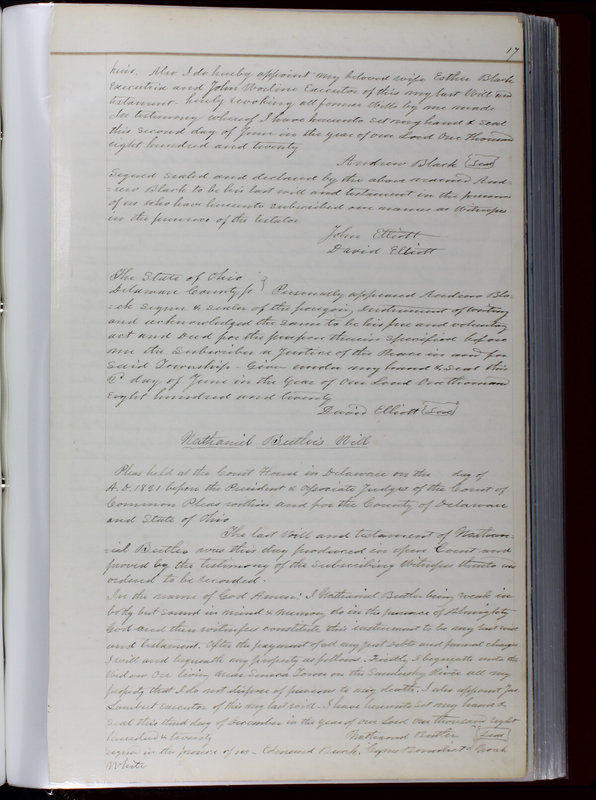 17
heirs. Also I do hereby appoint my beloved wife Esther Black
Executrix and John Executor of this my last Will and
testament. hereby revoking all former Wills by me made
In testimony whereof I have hereunto set my hand & seal
this second day of June in the year of our Lord One thousand
eight hundred and twenty
Andrew Black Seal
Signed Sealed and declared by the above named And-
-rew Black to be his last will and testament in the presence
of us who have hereunto subscribed our names as Witnesses
in the presence of the testator
John Elliott
David Elliott
The State of Ohio
Delaware County ss } Personally appeared Andrew Bla-
-ck Signer & Sealer of the foregoing Instrument of writing
and acknowledged the same to be his free and voluntary
act and Deed for the purposes therein specified before
me the Subscriber a Justice of the Peace in and for
Said Township. Given under my hand & Seal this
6th day of June in the Year of Our Lord One thousand
Eight hundred and twenty
David Elliott Seal
Nathaniel Butler's Will
Pleas held at the Court House in Delaware on the day of
A.D. 1821 before the President & Associate Judges of the Court of
Common Pleas within and for the County of Delaware
and State of Ohio
The last Will and testament of Nathan-
-iel Butler was this day produced in open Court and
proved by the testimony of the Subscribing Witnesses thereto and
ordered to be recorded.
In the name of God Amen: I Nathaniel Butler being weak in
body but sound in mind & memory do in the presence of Almighty
God and these witnesses constitute this instrument to be my last will
and testament. After the payment of all my just Debts and funeral charges
I will and bequeath my property as follows. Firstly I bequeath unto the
Widow living near Seneca Town on the Sandusky River all my
property that I do not dispose of previous to my death. I also appoint
Lambert Executor of this my last will. I have hereunto Set my hand &
Seal this third day of December in the year of our Lord One thousand eight
hundred & twenty Nathaniel Butler Seal
Signed in the presence of us - Edmund Buck, Cyrus Benedict & Noah
White